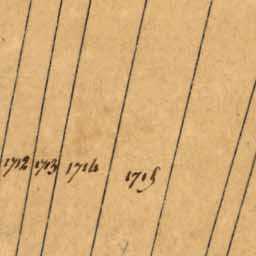 1712 1713 1714 1715